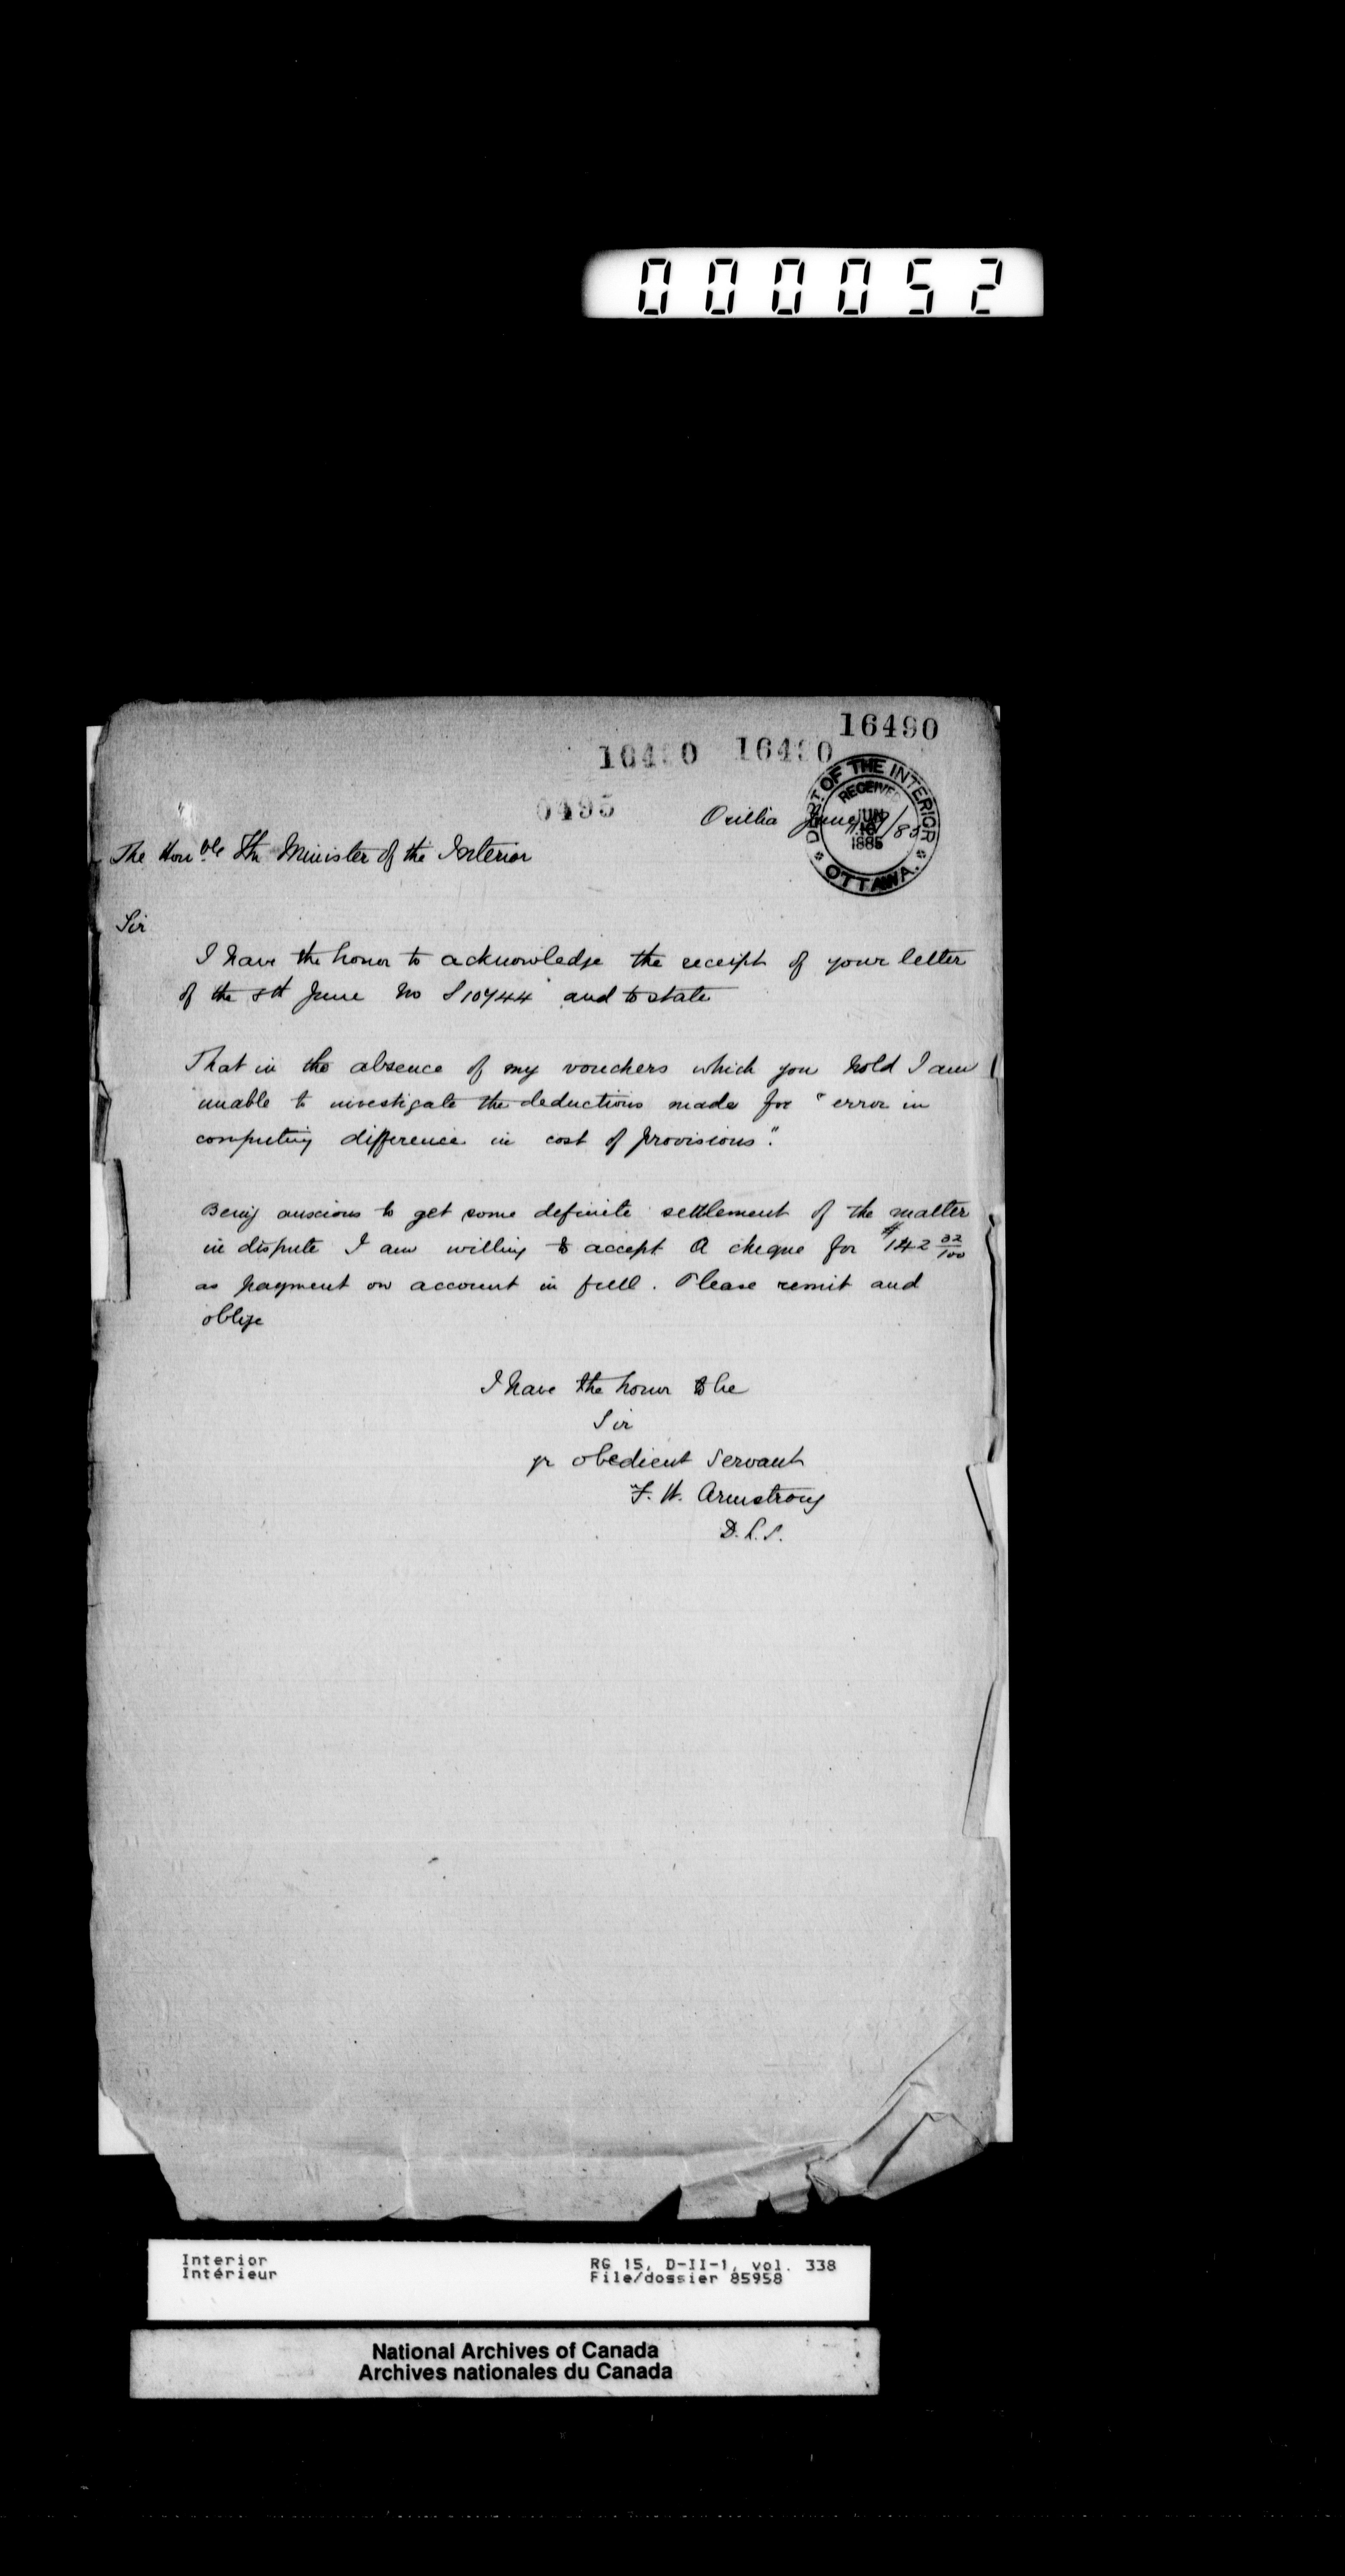 000052
16490
16490 16490
0495
DEPT. OF THE INTERIOR
RECEIVED
JUN
1885
OTTAWA.
Orillia June /85
The Honble The Minister of the Interior
Sir
I have the honor to acknowledge the receipt of your letter
of the 8th June No and to state
That in the absence of my vouchers which you hold I am
unable to investigate the deductions made for "error in
computing difference in cost of provisions".
Being anxious to get some definite settlement of the matter
in dispute I am willing to accept a cheque for $142 32/100
as payment on account in full. Please remit and
oblige
I have the honor to be
Sir
yr obedient Servant
F. W. Armstrong
D.L.S.
Interior
Intérieur
RG 15, D-II-1, vol. 338
File/dossier 85958
National Archives of Canada
Archives nationales du Canada